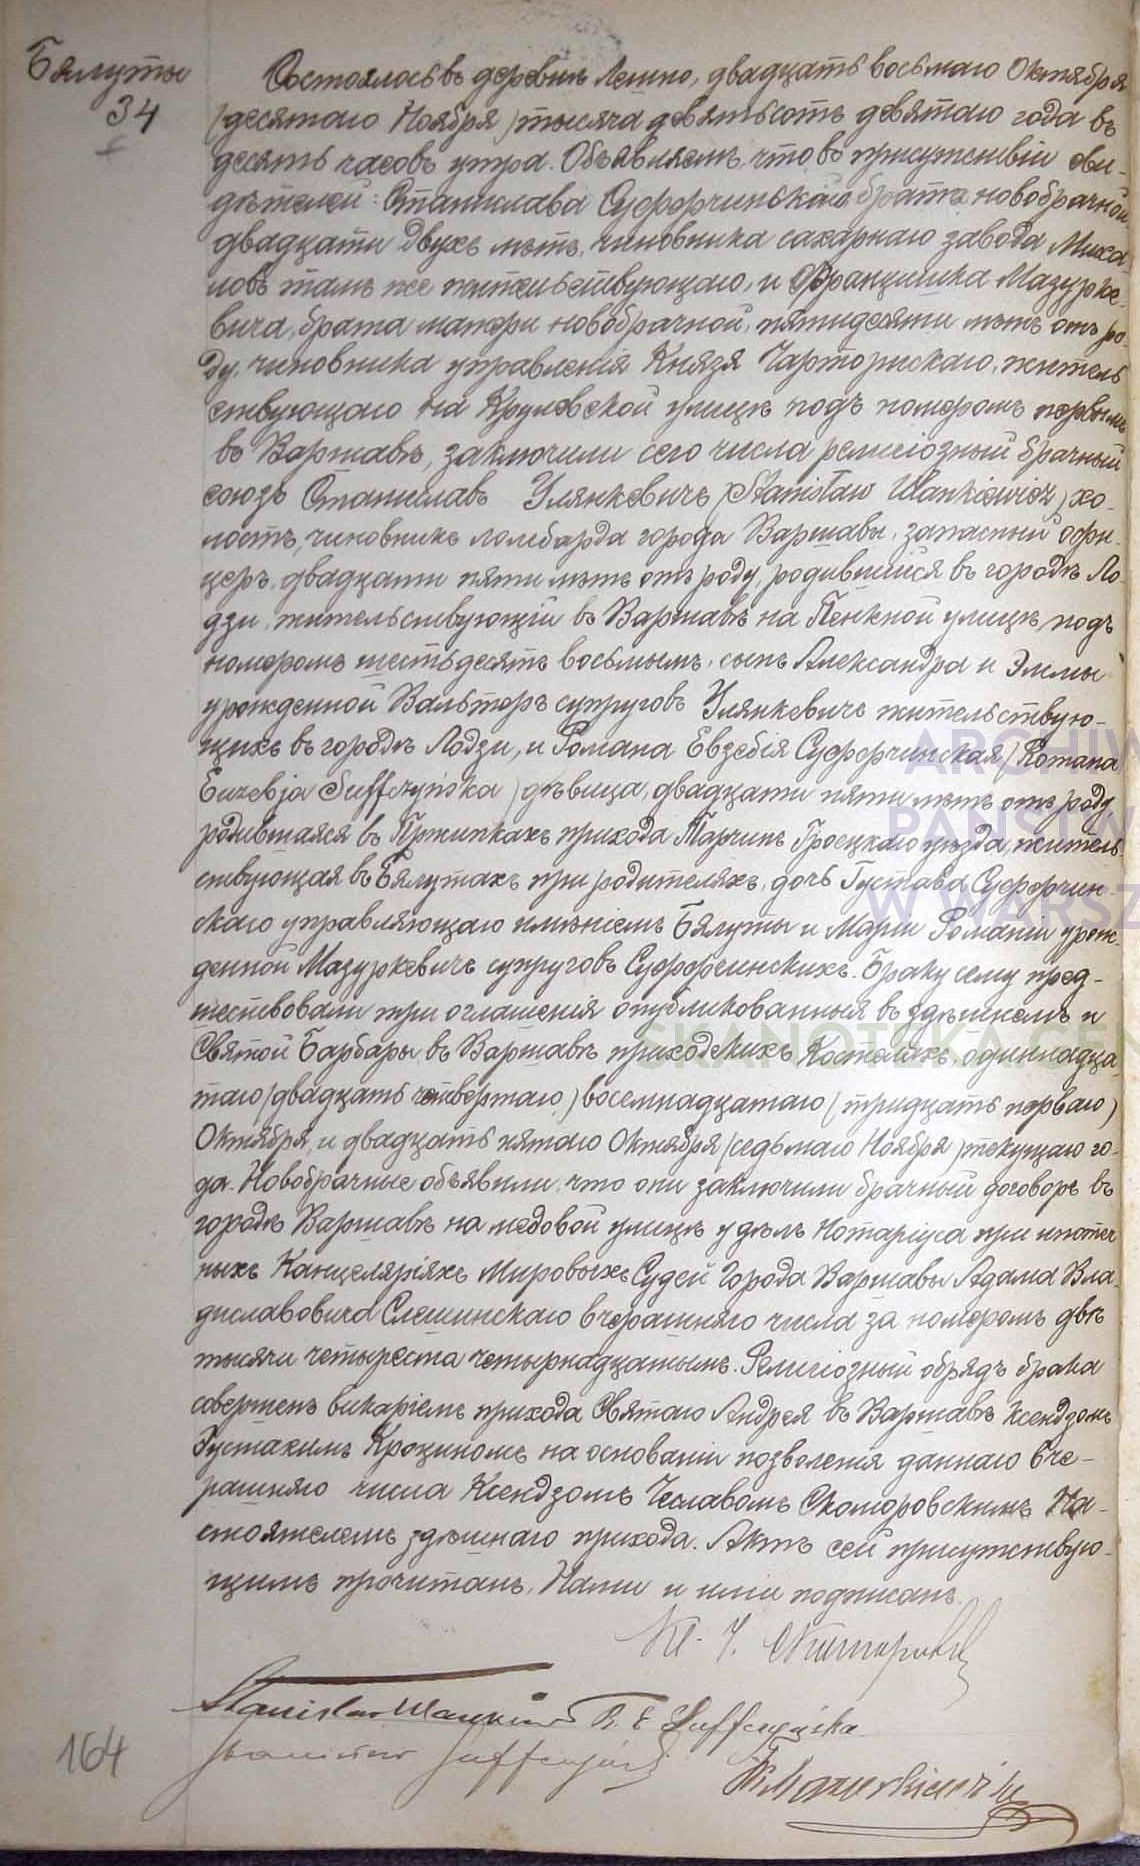 Бялуты
34
Состоялось въ деревнѣ Лешно, двадцать восьмаго Октября
(десятаго Ноября) тысяча девятьсотъ девятаго года въ
десять часовъ утра. Объявляемъ, что въ присутствіи сви-
дѣтелей: Станислава Суффчинскаго брата новобрачной,
двадцати двухъ лѣтъ, чиновника сахарнаго завода Миха-
ловъ тамъ же жительствующаго, и Францишка Мазурке-
вича, брата матери новобрачной, пятидесяти лѣтъ отъ ро-
ду, чиновника управленія Князя Чарторискаго, житель
ствующаго на Крулевской улицѣ подъ номеромъ первымъ
въ Варшавѣ, заключили сего числа религіозный брачный
союзъ Станиславъ Улянкевичъ (Stanisław Ulankiewicz) хо-
лостъ, чиновникъ ломбарда города Варшавы, запасный офи-
церъ, двадцати пяти лѣтъ отъ роду, родившійся въ городѣ Ло-
дзи, жительствующій въ Варшавѣ на Пенкной улицѣ подъ
номеромъ шестьдесятъ восьмымъ, сынъ Александра и Эммы
урожденной Вальтеръ супруговъ Улянкевичъ жительствую-
щихъ въ городѣ Лодзи, и Романа Евзебія Суффчинская (Romana
Euzebja Suffczyńska) дѣвица, двадцати пяти лѣтъ отъ роду
родившаяся въ Пржипкахъ прихода Тарчинъ Гроецкаго уѣзда, житель-
ствующая въ Бялутахъ при родителяхъ, дочь Густава Суффчин-
скаго управляющаго имѣніемъ Бялуты и Маріи Романіи урож-
денной Мазуркевичъ супруговъ Суффчинскихъ. Браку сему пред-
шествовали три оглашенія опубликованныя въ здѣшнемъ и
Святой Барбары въ Варшавѣ приходскихъ Костелахъ, одиннадца-
таго (двадцать четвертаго) восемнадцатаго (тридцать перваго)
Октября, и двадцать пятаго Октября (седьмаго Ноября) текущаго го-
да. Новобрачные объявили, что они заключили брачный договоръ въ
городѣ Варшавѣ на медовой улицѣ у дѣлъ Нотаріуса при ипотеч
ныхъ Канцеляріяхъ Мировыхъ Судей Города Варшавы Адама Вла-
диславовича Слешинскаго вчерашняго числа за номеромъ двѣ
тысячи четыреста четырнадцатымъ. Религіозный обрядъ брака
совершенъ викаріемъ прихода Святаго Андрея въ Варшавѣ Ксендзомъ
Крошиномъ на основаніи позволенія даннаго вче-
рашняго числа Ксендзомъ Чеславомъ Скоморовскимъ На-
стоятелемъ здѣшнаго прихода. Актъ сей присутствую-
щимъ прочитанъ, Нами и ими подписанъ.
Stanisław Ulankiewicz R. E. Suffczyńska
Stanisław Suffczyński
F. Mazurkiewicz
164
ARCHIW
PAŃSTW
W WARSZ
SKANOTEKA.GEN